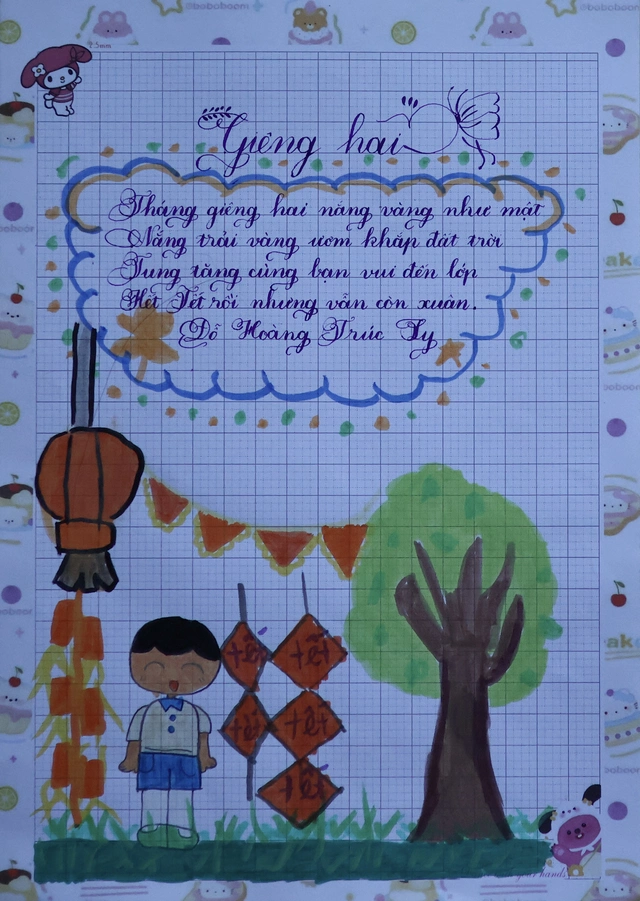 @boboboom
@boboboom
Giêng hai
Tháng giêng hai nắng vàng như mật
Nắng trải vàng ươm khắp đất trời
Tung tăng cùng bạn vui đến lớp
Hết Tết rồi nhưng vẫn còn xuân.
Đỗ Hoàng Trúc Ly
tết tết
tết tết
tết